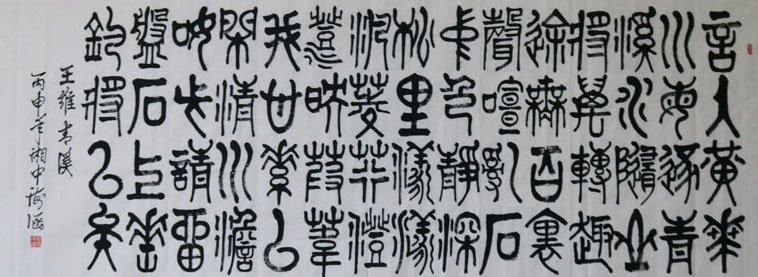 言入黃花
川每逐青
溪水隨山
將萬轉趣
途無百裏
聲喧亂石
中色靜深
松里漾漾
泛菱荇澄
澄映葭葦
我心素已
閑清川澹
如此請留
盤石上垂
釣將已矣
王維青溪
丙申年湘中